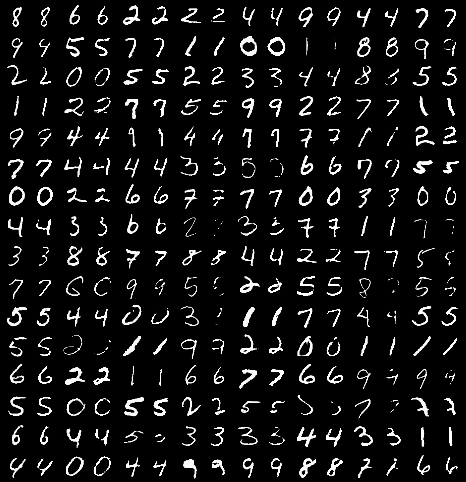 8 8 6 6 2 2 2 2 4 4 9 9 4 4 7 7
9 9 5 5 7 7 1 1 0 0 1 1 8 8 9 9
2 2 0 0 5 5 2 2 3 3 4 4 8 8 5 5
1 1 2 2 7 7 5 5 9 9 2 2 7 7 1 1
9 9 4 4 1 1 4 4 7 7 7 7 1 1 2 2
7 7 4 4 4 4 3 3 5 5 6 6 7 7 5 5
0 0 2 2 6 6 7 7 7 7 0 0 3 3 0 0
4 4 3 3 6 6 2 3 3 7 7 1 1 7 7
3 3 8 8 7 7 8 8 4 4 2 2 7 7 5 5
7 7 6 0 9 9 5 5 2 2 5 5 8 5 5
5 5 4 4 0 0 3 1 1 7 7 4 4 5 5
5 5 2 1 1 9 9 2 2 0 0 1 1 1 1
6 6 2 2 1 1 6 6 7 7 6 6 9 9 9 9
5 5 0 0 5 5 2 2 5 5 5 7 7 7
6 6 4 4 5 3 3 3 3 4 4 3 3 1 1
4 4 0 0 4 4 9 9 9 9 8 8 7 6 6